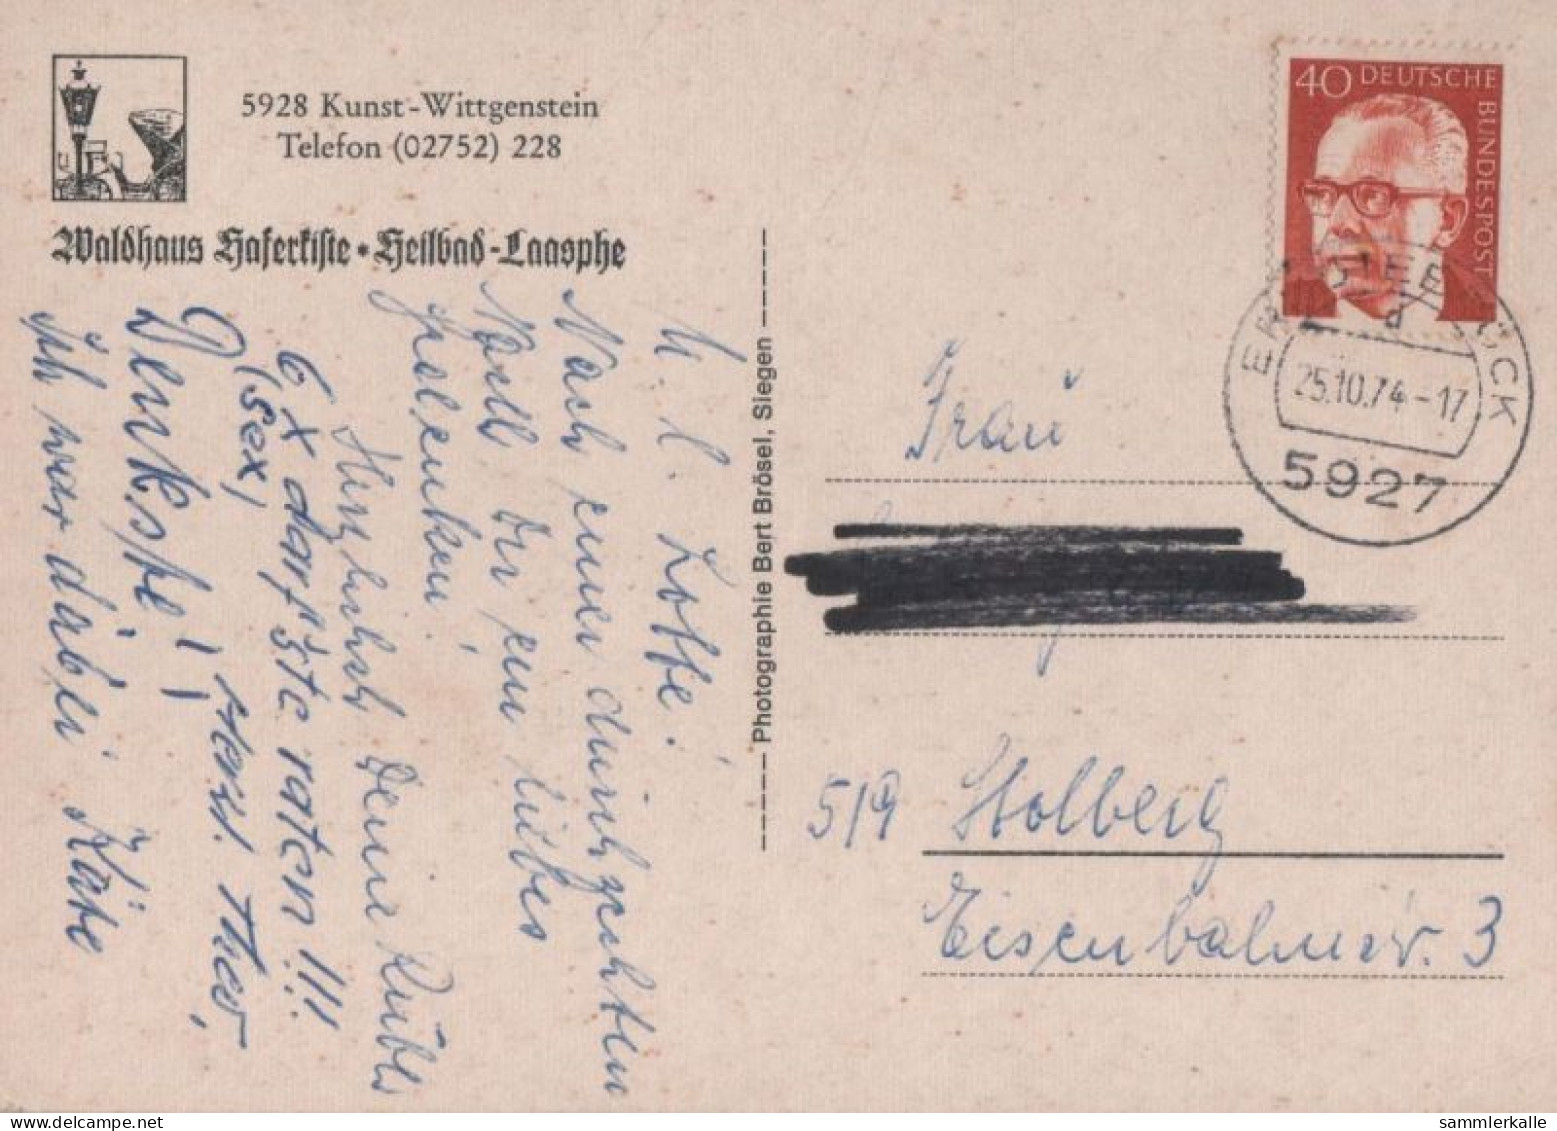 5928 Kunst-Wittgenstein
Telefon (02752) 228
Waldhaus Haferkiste • Heilbad-Laasphe
M. l. Lotte!
Nach einer durchzechten
Nacht Dir ein liebes
Gedenken!
Herzlichst Deine
6 x darfste raten!!!
(Sex,
Denkste!
Herzl. Theo,
Ich war dabei Käte
Photographie Bert Brösel, Siegen
40 DEUTSCHE BUNDESPOST
ERNDTEBRÜCK
a
25.10.74-17
5927
Frau
519 Stolberg
Eisenbahnstr. 3
sammlerkalle